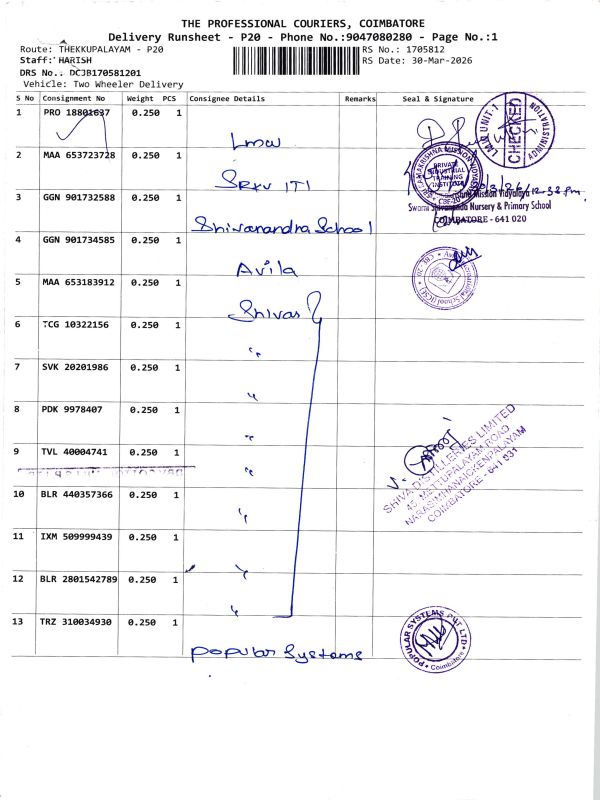 THE PROFESSIONAL COURIERS, COIMBATORE
Delivery Runsheet - P20 - Phone No.:9047080280 - Page No.:1
Route: THEKKUPALAYAM - P20
RS No.: 1705812
Staff: HARISH
RS Date: 30-Mar-2026
DRS No.: DCJB170581201
Vehicle: Two Wheeler Delivery
S No Consignment No Weight PCS Consignee Details Remarks Seal & Signature
1 PRO 18801637 0.250 1 Lmw
LMW UNIT-1 CHECKED ADMINISTRATION
2 MAA 653723728 0.250 1 SRKV ITI
PRIVATE INDUSTRIAL TRAINING INSTITUTE
3 GGN 901732588 0.250 1 Shivanandra School
Mission Vidyalaya
Swami Shivananda Nursery & Primary School
COIMBATORE - 641 020
4 GGN 901734585 0.250 1 Avila
5 MAA 653183912 0.250 1 Shivas
6 TCG 10322156 0.250 1 "
7 SVK 20201986 0.250 1 "
8 PDK 9978407 0.250 1 "
9 TVL 40004741 0.250 1 "
SHIVA DISTILLERIES LIMITED
45, METTUPALAYAM ROAD
NARASIMHANAICKENPALAYAM
COIMBATORE - 641 031
10 BLR 440357366 0.250 1 "
11 IXM 509999439 0.250 1 "
12 BLR 2801542789 0.250 1 "
13 TRZ 310034930 0.250 1 popular Systems
POPULAR SYSTEMS PVT LTD
Coimbatore